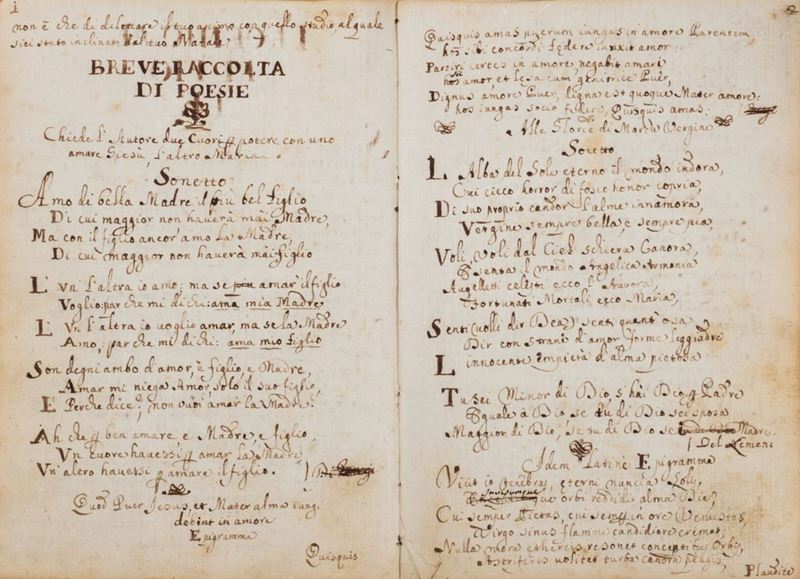 1
non è che di dilettare il tuo animo con questo studio al quale
sei stato inclinato dal tuo Natale
BREVE RACCOLTA
DI POESIE
Chiede l'Autore due Cuori per potere con uno
amare Giesù, l'altro Maria
Sonetto
Amo di bella Madre il più bel figlio
Di cui maggior non haverà mai Madre,
Ma con il figlio ancor' amo la Madre,
Di cui maggior non haverà mai figlio
L'un l'altra io amo; ma se amar' il figlio
Voglio: par che mi dichi: ama mia Madre
L'un l'altra io voglio amar, ma se la Madre
Amo: par che mi dichi: ama mio figlio
Son degni ambo d'amor, e figlio, e Madre,
Amar mi niega Amor, solo il suo figlio,
E Perche dice, non vuoi amar la Madre?
Ah che per ben amare, e Madre, e figlio,
Un cuore havessi per amar la Madre
Un' altro havessi per amare il figlio.
Quod Puer Jesus, et Mater alma iungi
debint in amore
Epigramma
Quisquis
2
Quisquis amas puerum iungas in amore Parentem,
hos sibi concordi federe iunxit amor:
Partiri certes in amore, negabit amari
Sic
hos amor et lesa cum genitrice Puer,
Dignus amore Puer, digna est quoque Mater amore:
hos iungas socio federe, Quisquis amas:
Alle Glorie di Maria Vergine
Sonetto
L'Alba del Sole eterno il mondo indora,
Cui cieco horror di fosco honor copria,
Di suo proprio candor l'alme innamora,
Vergine sempre bella e sempre pia,
Voli, voli dal Ciel schiera Canora,
E senta il mondo Angelica Armonia
Augelletti celesti ecco l'Aurora,
Fortunati Mortali ecco Maria,
Senti (volli dir Dea) senti quant' osa
Dir con strani d'amor forme leggiadre
L'innocente empietà d'alma pietosa
Tu sei Minor di Dio, s'hai Dio per Padre
Eguale a Dio se tu di Dio sei sposa
Maggior di Dio, se tu di Dio sei Madre.
Del Lemoni
Idem Latine Epigramma
Vicit io tenebras, eterni nuncia Solis,
quo orbi reddidit alma Dies,
Cui semper Pietas, cui semper in ore Venustas,
Virgo sinus flamma candidiore cremat,
Nulla mora ethereis resonet concentibus Orbis,
Astriferis volitet turba canora plagis,
Plaudite